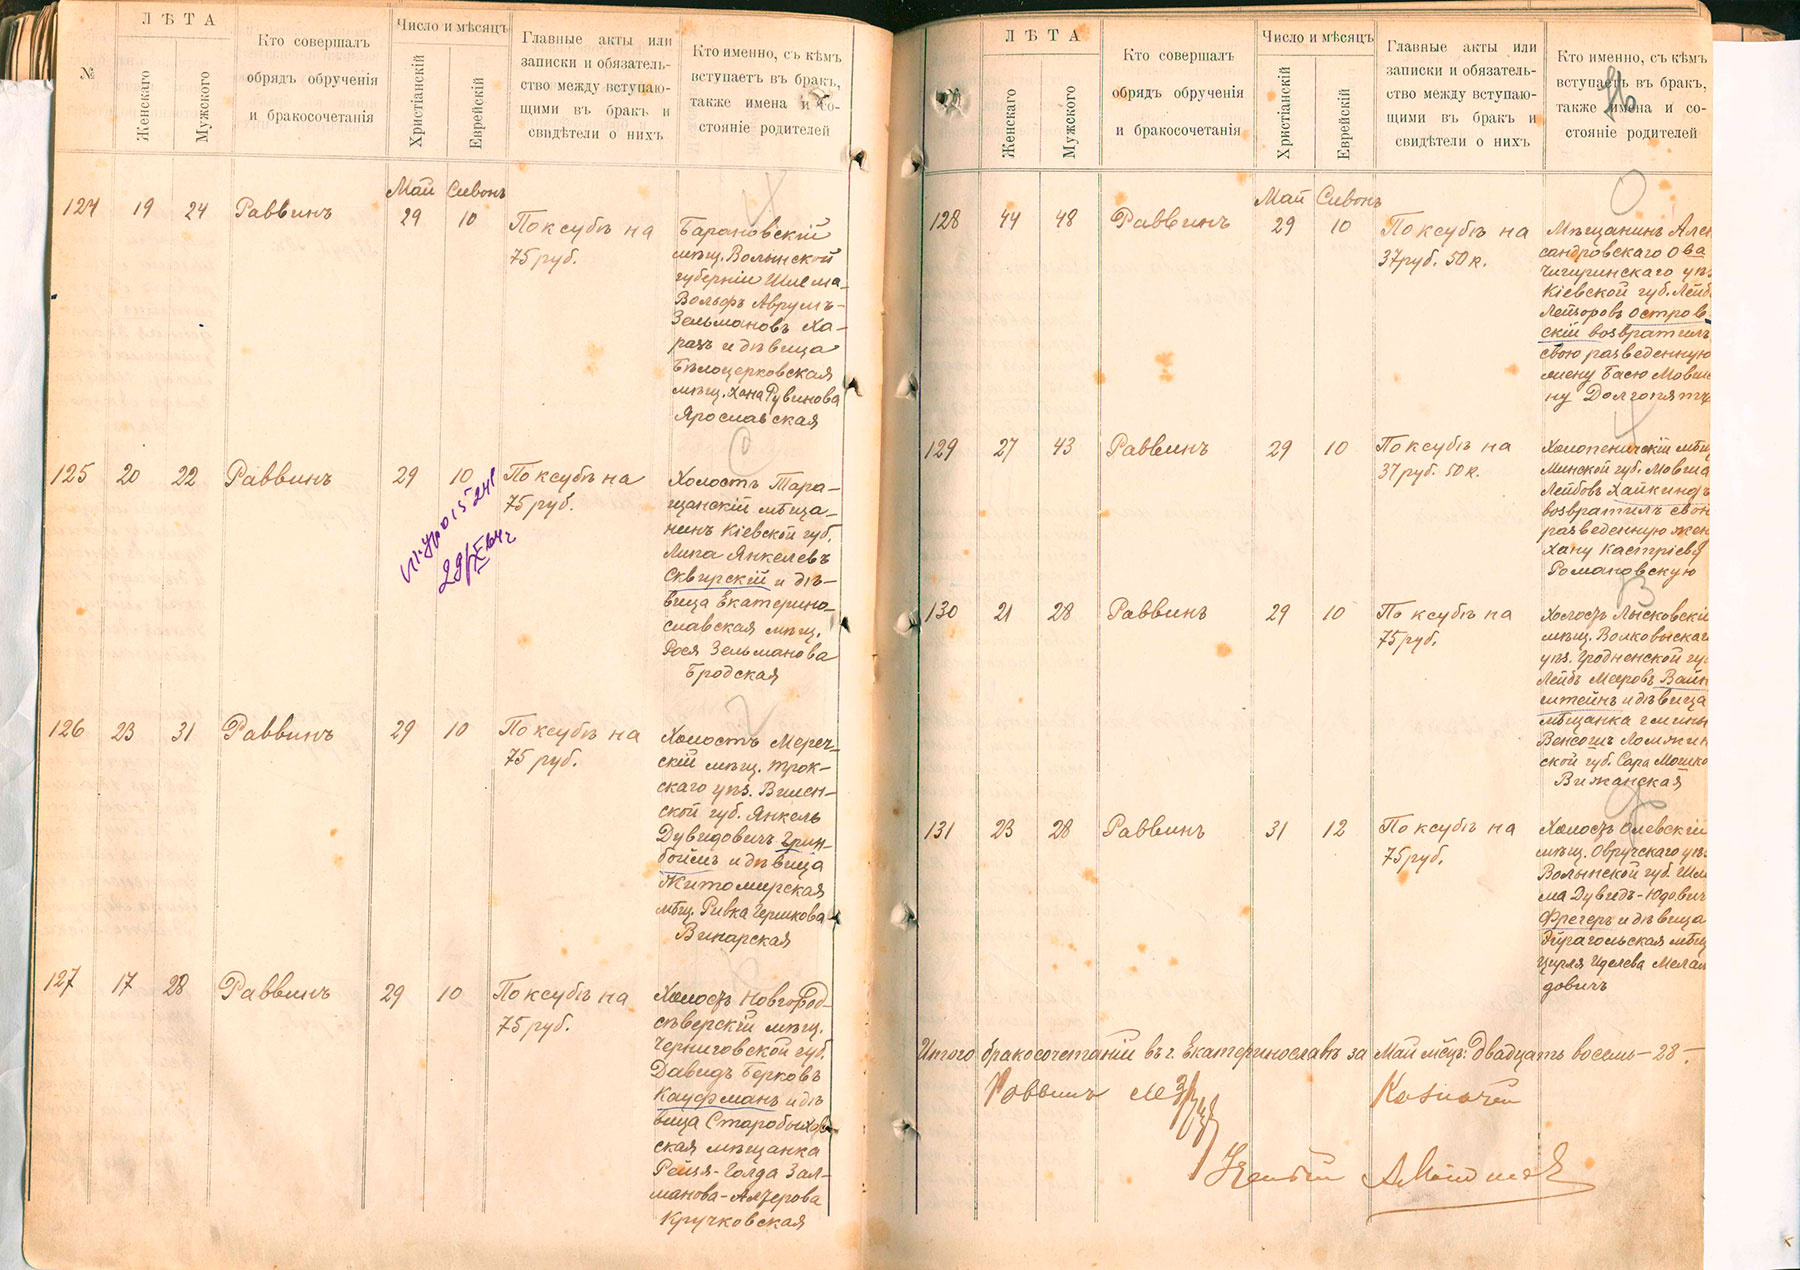 №
ЛѢТА
Женскаго
Мужского
Кто совершалъ
обрядъ обрученія
и бракосочетанія
Число и мѣсяцъ
Христіанскій
Еврейскій
Главные акты или
записки и обязатель-
ство между вступаю-
щими въ бракъ и
свидѣтели о нихъ
Кто именно, съ кѣмъ
вступаетъ въ бракъ,
также имена и со-
стояніе родителей
Май Сивонъ
124 19 24 Раввинъ 29 10
По ксубѣ на
75 руб.
Барановскій
мѣщ. Волынской
губерніи Шлема-
Вольфъ Аврумъ-
Зельмановъ Ха-
разъ и дѣвица
Бѣлоцерковская
мѣщ. Хана Рувинова
Ярославская
125 20 22 Раввинъ 29 10
По ксубѣ на
75 руб.
Холостъ Тара-
щанскій мѣща-
нинъ Кіевской губ.
Липа Янкелевъ
Сквирскій и дѣ-
вица Екатерино-
славская мѣщ.
Рося Зельманова
Бродская
126 23 31 Раввинъ 29 10
По ксубѣ на
75 руб.
Холостъ Мереч-
скій мѣщ. Трок-
скаго уѣз. Вилен-
ской губ. Янкель
Дувидовичъ Грин-
боймъ и дѣвица
Житомирская
мѣщ. Ривка Гершкова
Винарская
127 17 28 Раввинъ 29 10
По ксубѣ на
75 руб.
Холостъ Новгород-
сѣверскій мѣщ.
Черниговской губ.
Давидъ Берковъ
Кауфманъ и дѣ
вица Старобыхов-
ская мѣщанка
Рейзя-Голда Зал-
манова-Алтерова
Кручковская
ЛѢТА
Женскаго
Мужского
Кто совершалъ
обрядъ обрученія
и бракосочетанія
Число и мѣсяцъ
Христіанскій
Еврейскій
Главные акты или
записки и обязатель-
ство между вступаю-
щими въ бракъ и
свидѣтели о нихъ
Кто именно, съ кѣмъ
вступаетъ въ бракъ,
также имена и со-
стояніе родителей
Май Сивонъ
128 44 48 Раввинъ 29 10
По ксубѣ на
37 руб. 50 к.
Мѣщанинъ Алек
сандровскаго О-ва
Чигиринскаго уѣз
Кіевской губ. Лейб
Лейзоровъ Остров-
скій возвратилъ
свою разведенную
жену Басю Мовше
ну Долгопят
129 27 43 Раввинъ 29 10
По ксубѣ на
37 руб. 50 к.
Холопеничскій мѣщ
Минской губ. Мовша
Лейбовъ Хайкинъ
возвратилъ свою
разведенную жен
Хану Кастріеву
Романовскую
130 21 28 Раввинъ 29 10
По ксубѣ на
75 руб.
Холостъ Лысковскій
мѣщ. Волковыскаг
уѣз. Гродненской гу
Лейбъ Мееровъ Вайн
штейнъ и дѣвица
мѣщанка гмины
Венсошъ Ломжин
ской губ. Сара Мошко
Вижанская
131 23 28 Раввинъ 31 12
По ксубѣ на
75 руб.
Холостъ Олевскій
мѣщ. Овручскаго уѣз
Волынской губ. Шле
ма Дувидъ-Юдович
Фрегеръ и дѣвица
Эйрагольская мѣщ
Цирля Иделева Мелам
довичъ
Итого бракосочетаній въ г. Екатеринославѣ за Май мѣсц: Двадцать восемь - 28 -
Раввинъ
Казначей